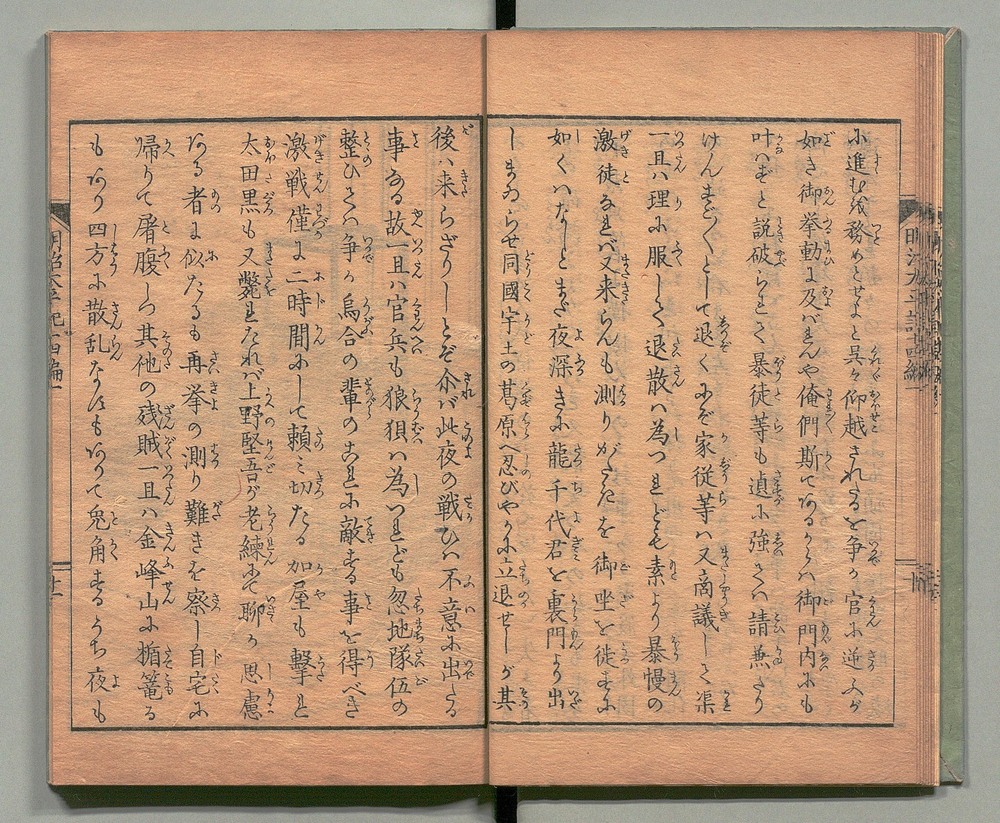 に進む様務めさせよと具々仰越されたるを争か官に逆ふが
如き御挙動に及ばせんや俺們斯てあるからハ御門内にも
叶ハずと説破られて暴徒等も遉に強てハ請兼たり
けんすごくとして退くにぞ家従等ハ又商議して渠
一旦ハ理に服して退散ハ為つれども素より暴慢の
激徒なれバ又来らんも測りがたきを御坐を徙すに
如くハなしとまだ夜深きに龍千代君を裏門より出
しまゐらせ同國宇土の葛原へ忍びやかに立退せしが其
後ハ来らざりしとぞ尒バ此夜の戦ひハ不意に出たる
事なる故一旦ハ官兵も狼狽ハ為つれども忽地隊伍の
整ひてハ争か烏合の輩のこれに敵する事を得べき
激戦僅に二時間にして頼ミ切たる加屋も撃れ
大田黒も又斃れたれバ上野堅吾が老練にて聊か思慮
ある者に似たるも再挙の測り難きを察し自宅に
帰りて屠腹しつ其他の残賊一旦ハ金峰山に楯篭る
もあり四方に散乱なすもありて兎角するうち夜も
明治太平記 四編一
十一